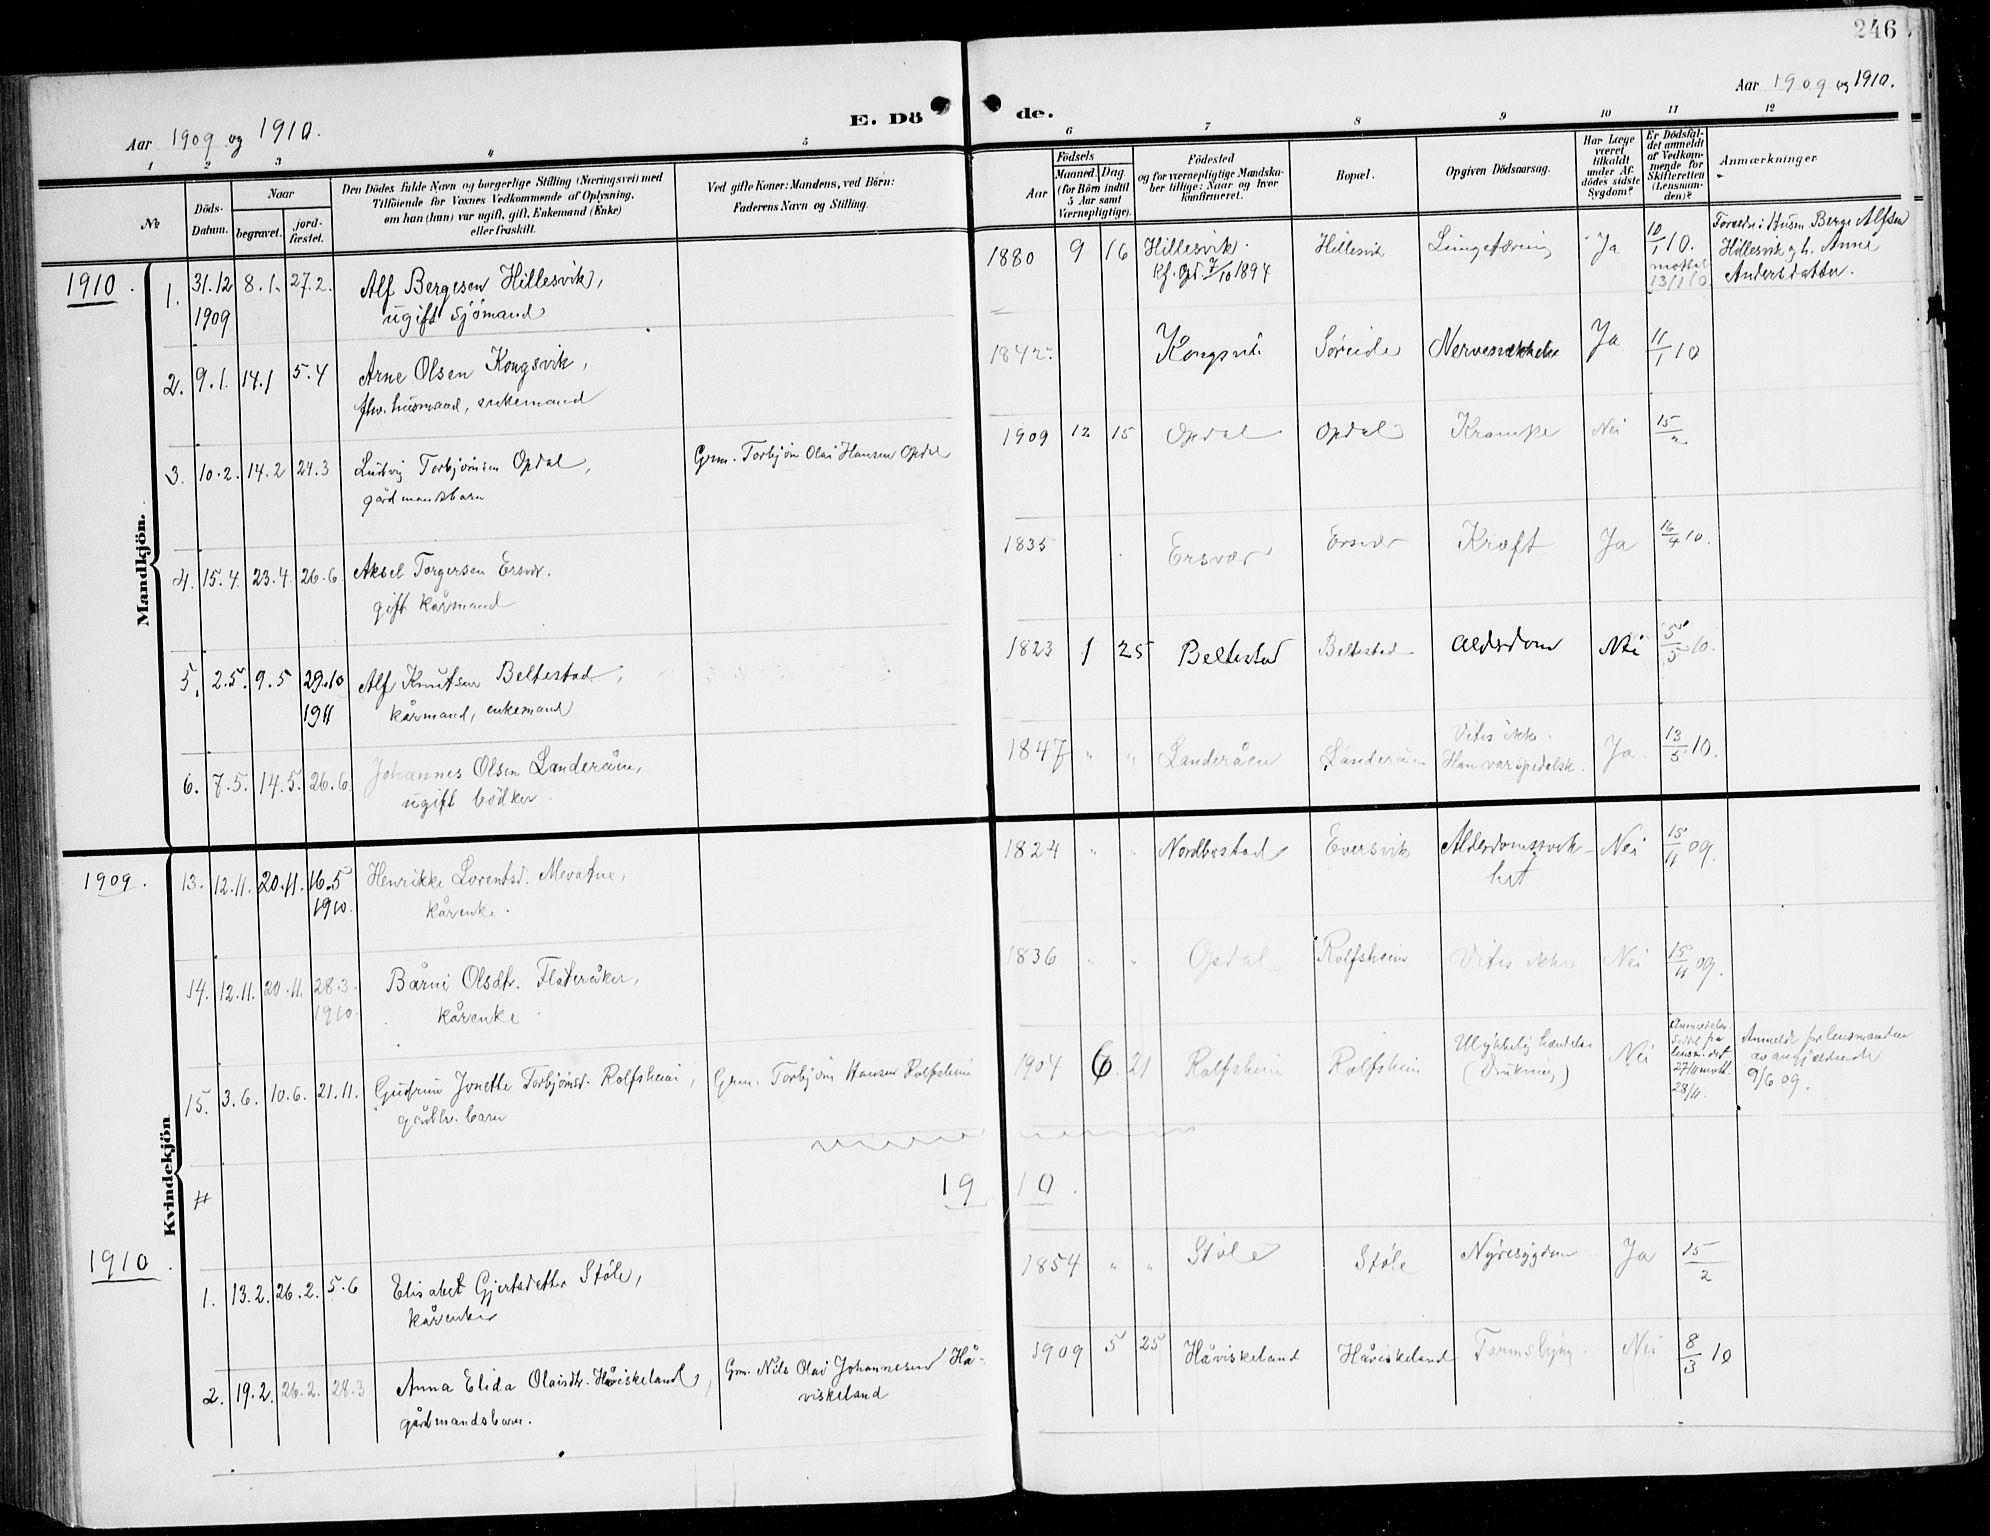 246
Aar 1909 og 1910.
E. Dö
de.
Aar 1909 og 1910.
1 2 3 4 5
6 7 8 9 10 11 12
№
Döds-
Datum.
Naar
begravet.
jord-
fæstet.
Den Dödes fulde Navn og borgerlige Stilling (Næringsvei) med
Tilföiende for Voxnes Vedkommende af Oplysning,
om han (hun) var ugift, gift, Enkemand (Enke)
eller fraskilt.
Ved gifte Koner: Mandens, ved Börn:
Faderens Navn og Stilling.
Födsels
Aar
Maaned.
Dag
(for Börn indtil
5 Aar samt
Værnepligtige).
Födested
og for værnepligtige Mandska-
ber tillige: Naar og hvor
konfirmeret.
Bopæl.
Opgiven Dödsaarsag.
Har Læge
været
tilkaldt
under Af-
dödes sidste
Sygdom?
Er Dödsfal-
det anmeldt
af Vedkom-
mende for
Skifteretten
(Lensman-
den)?
Anmærkninger
Mandkjön.
1910.
1. 31.12 1909 8.1. 27.2. Alf Bergesen Hillesvik,
ugift sjömand
1880 9 16 Hillesvik. Hillesvik Lungetæring Ja 10/1 10.
Kf. Opd. 7/10 1894
mottat
13/1 10
Forældre: Husm. Berge Alfsen
Hillesvik og h. Anne
Andersdatter.
2. 9.1. 14.1 5.4 Arne Olsen Kongsvik,
fhv. husmand, enkemand
1842 Kongsvik Søreide Ja 11/1 10
3. 10.2. 14.2 24.3 Ludvig Torbjörnsen Opdal,
gårdmandsbarn
Grm. Torbjörn Olai Hansen Opdal
1909 12 15 Opdal Opdal Krampe Nei 15/2
4. 15.4. 23.4. 26.6. Aksel Torgersen Ersvær.
gift kårmand
1835 Ersvær Ersvær Kræft Ja 16/4 10.
5. 2.5. 9.5 29.10 1911 Alf Knutsen Beltestad,
kårmand, enkemand
1823 1 25 Beltestad Beltestad Alderdom Nei 5/5 10.
6. 7.5. 14.5. 26.6 Johannes Olsen Landeråen,
ugift bödker.
1847 " " Landeråen Landeråen Vites ikke.
Han var spedalsk. Ja. 13/5 10.
Kvindekjön
1909.
13. 12.11. 20.11. 16.5 1910. Henrikke Lorentsd. Mevatne,
kårenke.
1824 " " Nordbøstad Eversvik Alderdomssvak-
het Nei 15/11 09.
14. 12.11. 20.11. 28.3 1910. Bårni Olsdtr. Flateråker,
kårenke
1836 " " Opdal Rolfsheim Vites ikke Nei 15/11 09.
15. 3.6. 10.6. 21.11. Gudrun Jonette Torbjörnsd. Rolfsheim,
gårdbr. barn
Grm. Torbjörn Hansen Rolfsheim
1904 6 21 Rolfsheim Rolfsheim Ulykkelig hændelse
(Drukning) Nei
27/11 mott.
28/11.
Anmeldt for lensmanden
9/6 09.
19 10.
1910.
1. 13.2. 26.2. 5.6 Elisabet Gjertsdatter Støle,
kårenke
1854 " " Støle Støle Nyresygdom Ja 15/2
2. 19.2. 26.2. 28.3 Anna Elida Olaisdtr. Håviskeland,
gårdmandsbarn.
Grm. Nils Olai Johannesen Hå-
viskeland
1909 5 25 Håviskeland Håviskeland Tarmslyng. Nei 8/3 10